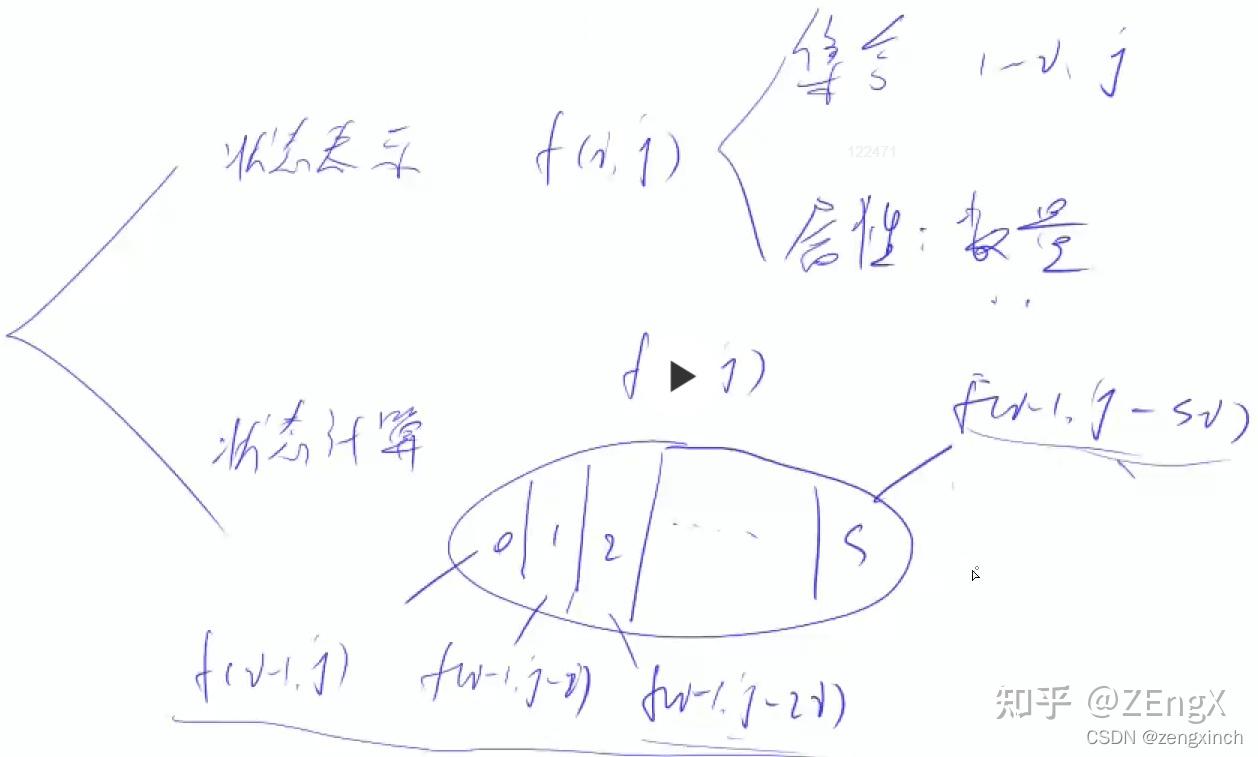 集合 1-i, j
状态表示 f(i, j)
122471
属性: 数量
f j)
f(i-1, j-si)
状态计算
0 1 2 ...... S
f(i-1, j) f(i-1, j-i) f(i-1, j-2i)
知乎 @ZEngX
CSDN @zengxinch